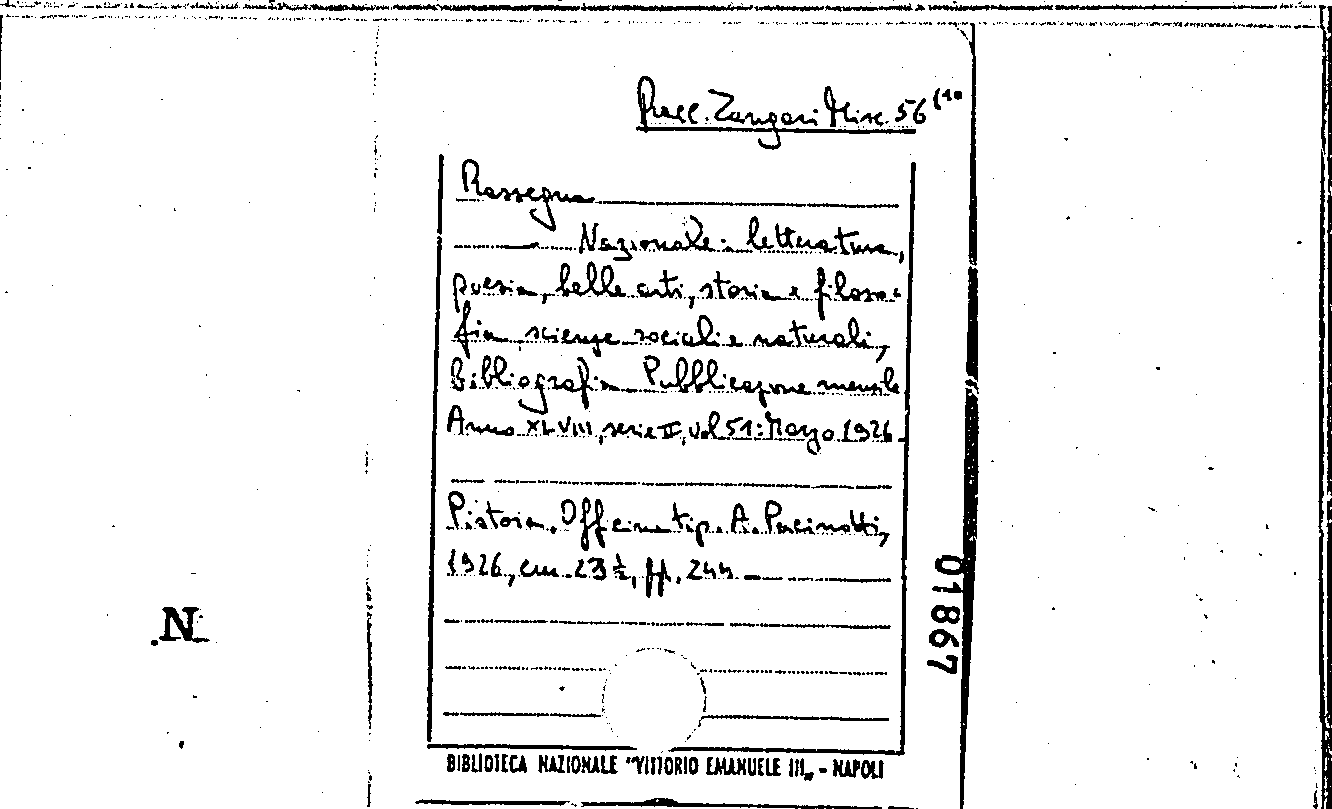 Racc. Zangari Misc. 56 (10
Rassegna
Nazionale: letteratura,
poesia, belle arti, storia e filoso-
fia, scienze sociali e naturali,
bibliografia. Pubblicazione mensile.
Anno XLVIII, serie II, vol 51: Marzo 1926.
Pistoia, Officina tip. A. Pacinotti,
1926, cm. 23 ½, pp. 244
01867
N
BIBLIOTECA NAZIONALE "VITTORIO EMANUELE III„ - NAPOLI